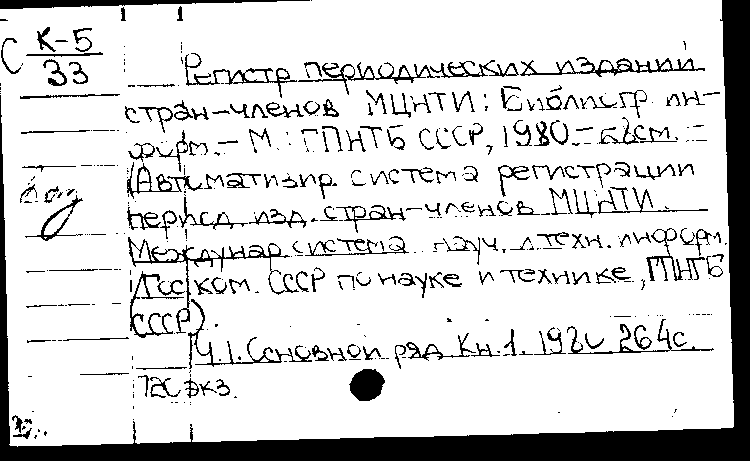 С К-5
33
Регистр периодических изданий
стран-членов МЦНТИ: Библиогр. ин-
форм. - М.: ГПНТБ СССР, 1980. - см. -
(Автоматизир. система регистрации
период. изд. стран-членов МЦНТИ.
Междунар. система науч. и техн. информ.
/Гос. ком. СССР по науке и технике, ГПНТБ
СССР).
Ч.1. Основной ряд. Кн.1. 1980 264с.
720 экз.